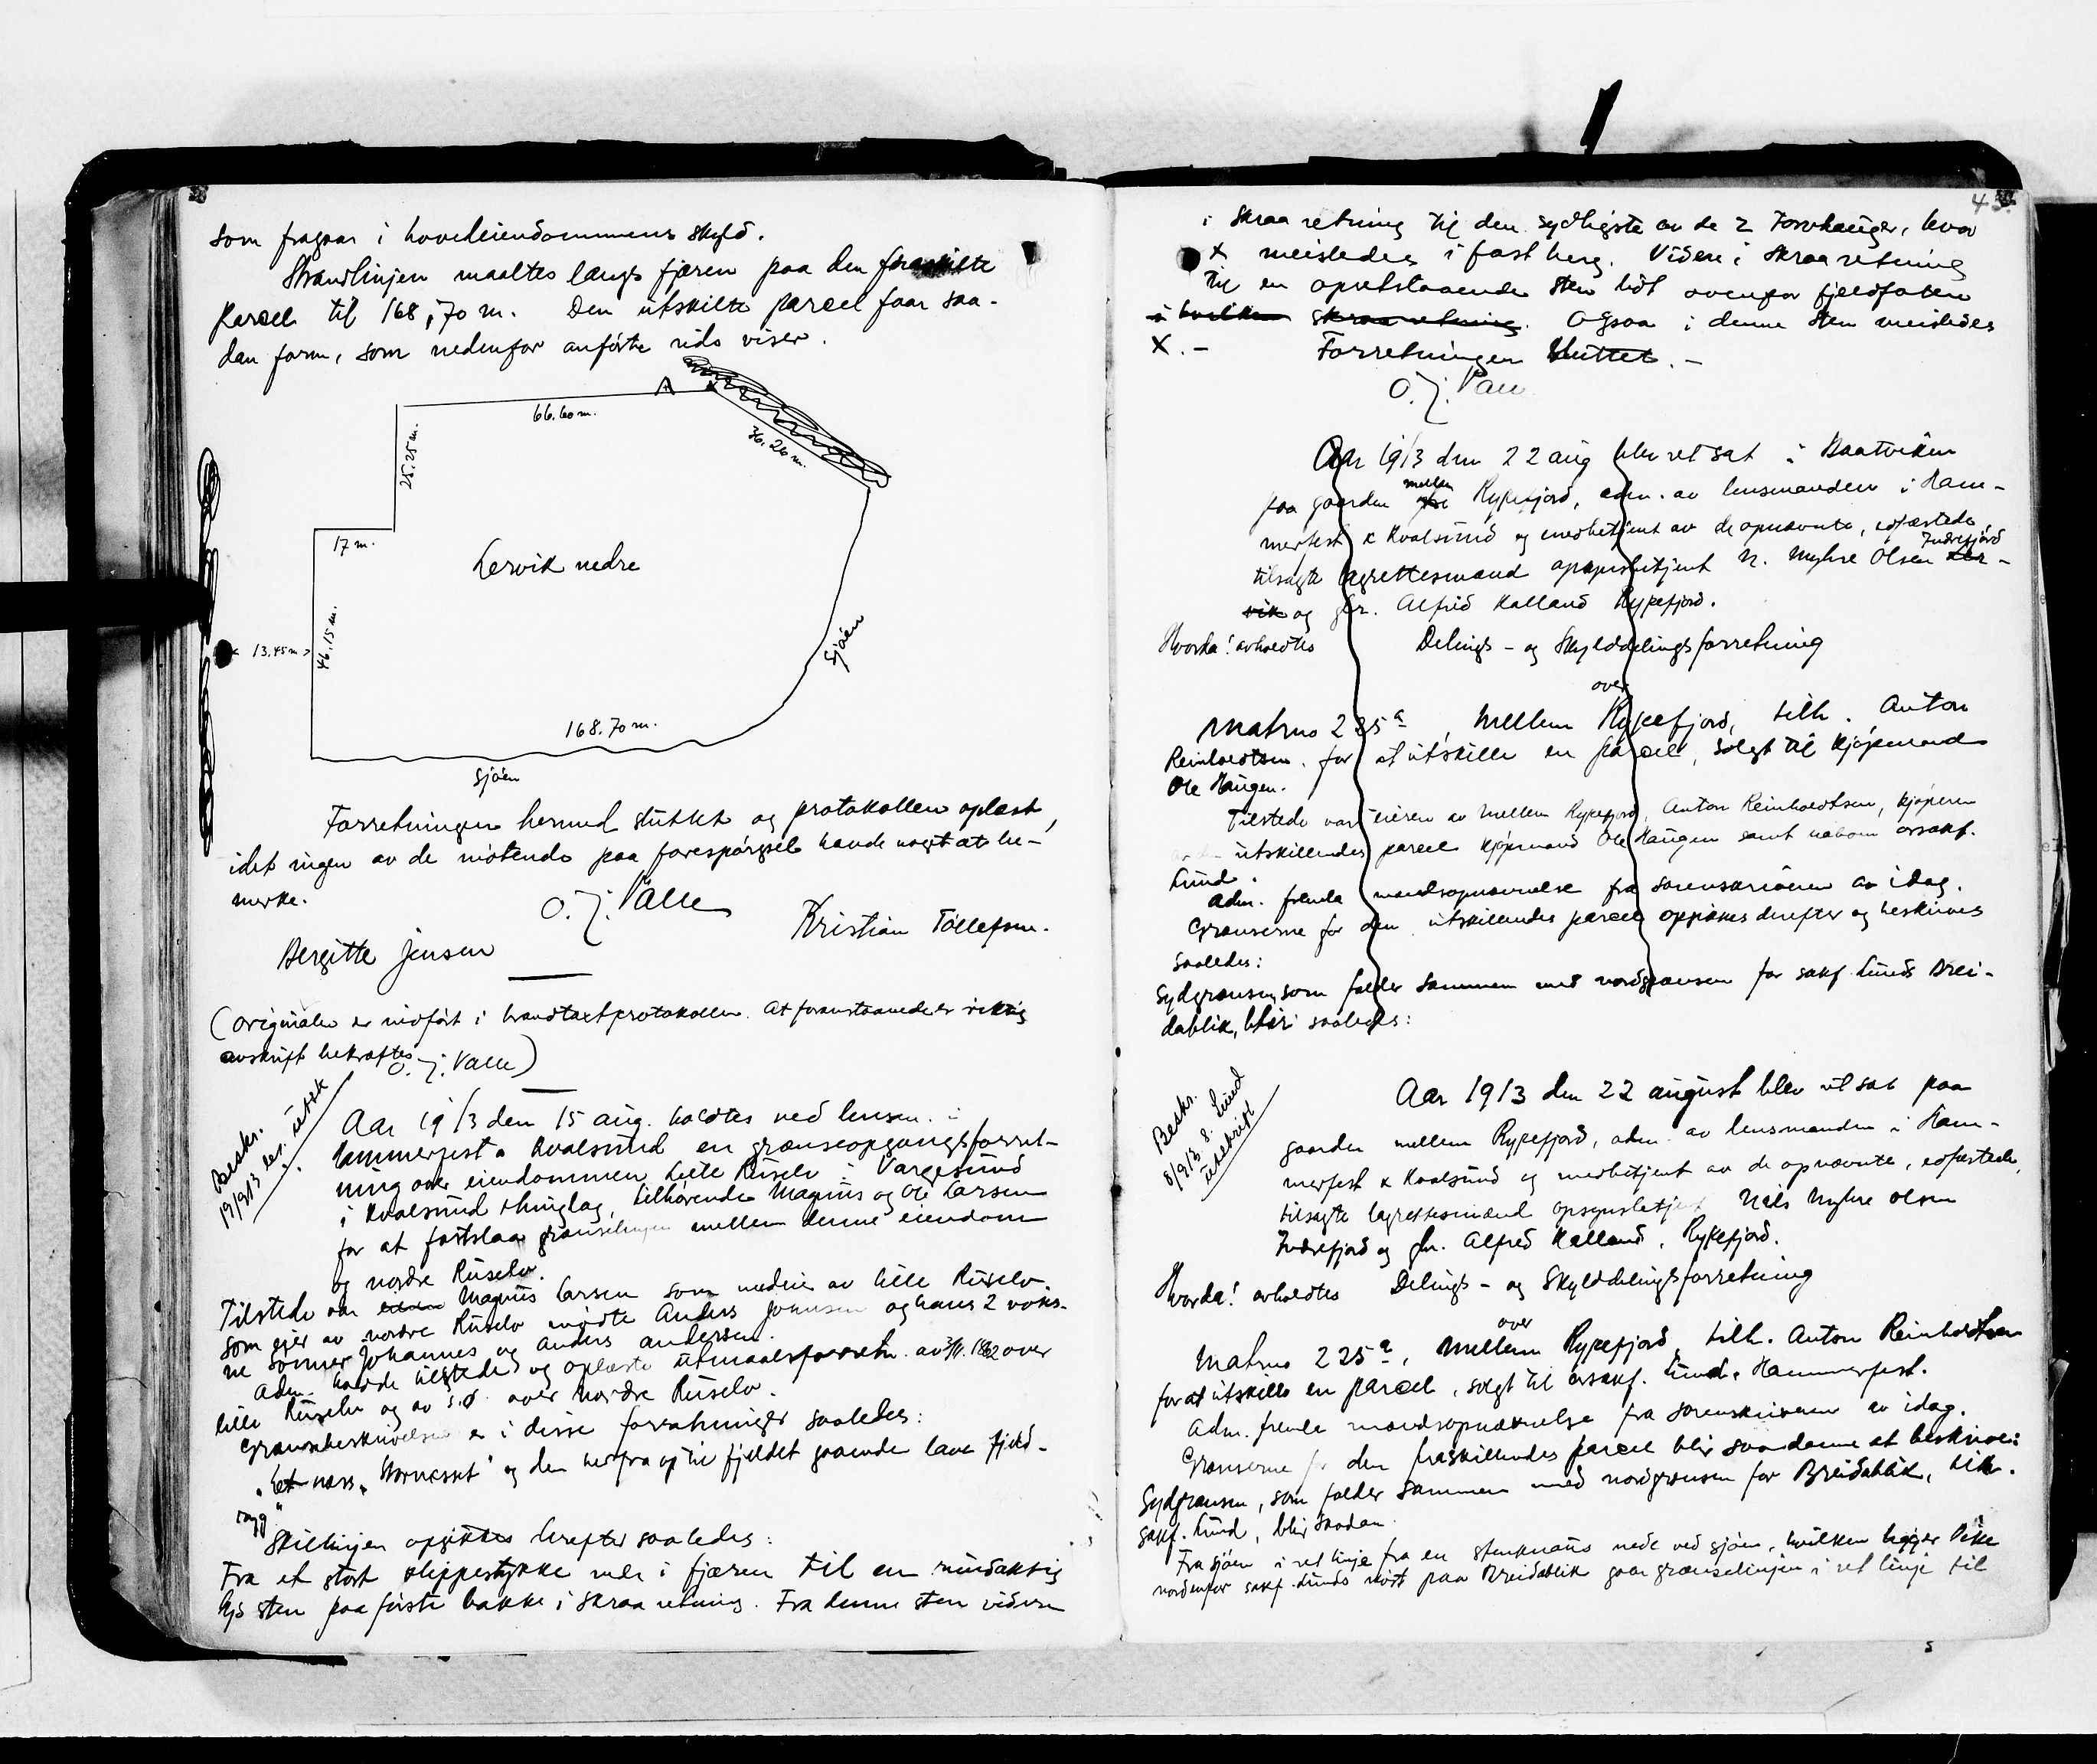 som fragaar i hovedeiendommens skyld.
Strandlinjen maaltes langs fjæren paa den fraskilte
parcel til 168,70 m. Den utskilte parcel faar saa-
dan form, som nedenfor anførte rids viser.
66.60 m.
36.20 m.
25.25 m.
17 m.
Lervik nedre
46.15 m.
13.45 m
Sjøen
168.70 m.
Sjøen
Forretningen hermed sluttet og protokollen oplæst,
idet ingen av de møtende paa forespørgsel havde noget at be-
merke.
O. J. Valle
Kristian Tollefsen.
Bergitte Jensen
(Originalen er indført i brandtaxtprotokollen. At foranstaaende er riktig
avskrift bekræftes
O. J. Valle)
Beskr.
19/9 13
Aar 1913 den 15 aug. holdtes ved lensm. i
Hammerfest & Kvalsund en grænseopgangsforret-
ning over eiendommen Lille Ruselv i Vargesund
i Kvalsund thinglag, tilhørende Magnus og Ole Larsen
for at fastslaa grænselinjen mellem denne eiendom
og nordre Ruselv.
Tilstede var Magnus Larsen som medeier av lille Ruselv.
Som eier av nordre Ruselv møtte Anders Johnsen og hans 2 voks-
ne sønner Johannes og Anders Andersen.
Adm. havde tilstede og oplæste utmaalsforretn. av 1862 over
lille Ruselv og av s.d. over nordre Ruselv.
Grænsebeskrivelsen er i disse forretninger saaledes:
"Et næss, og den herfra op til fjeldet gaaende lave fjeld-
rygg"
Skillinjen opgikkes derefter saaledes:
Fra et stort klippestykke nede i fjæren til en rundaktig
lys sten paa første bakke i skraa retning. Fra denne sten videre
43.
i skraa retning til den sydligste av de 2 Torvhauger, hvor
X meisledes i fast berg. Videre i skraa retning
til en opretstaaende sten lidt ovenfor fjeldfoten
i hvilken skraa retning. Ogsaa i denne sten meisledes
X. - Forretningen sluttet. -
O. J. Valle
Aar 1913 den 22 aug blev ret sat i Baatviken
paa gaarden mellem Rypefjord, adm. av lensmanden i Ham-
merfest & Kvalsund og medbetjent av de opnævnte, edfæstede,
tilsagte lagrettesmænd opsynsbetjent N. Myhre Olsen Indrefjord Ler-
vik og gbr. Alfred Kalland Rypefjord.
Hvorda! avholdtes Delings- og Skylddelingsforretning
over
Matrno 225a, Mellem Rypefjord, tilh. Anton
Reinholdtsen. for at utskille en parcel, solgt til kjøpmand
Ole Haugen.
Tilstede var eieren av Mellem Rypefjord, Anton Reinholdtsen, kjøperen
utskillendes parcel kjøpmand Ole Haugen samt naboen orsakf.
Lund.
Adm. fremla mandsopnævnelse fra sorenskriveren av idag.
Grænserne for den utskillendes parcel opgikkes derefter og beskrives
saaledes:
Sydgrænsen, som falder sammen med nordgrænsen for sakf. Lunds Brei-
dablik, blir saaledes:
Beskr.
8/9 13 S. Lund
utskrift
Aar 1913 den 22 august blev ret sat paa
gaarden mellem Rypefjord, adm. av lensmanden i Ham-
merfest & Kvalsund og medbetjent av de opnævnte, edfæstede,
tilsagte lagrettesmænd opsynsbetjent Nils Myhre Olsen
Indrefjord og gbr. Alfred Kalland, Rypefjord.
Hvorda! avholdtes Delings- og Skylddelingsforretning
over
Matrno 225a, Mellem Rypefjord, tilh. Anton Reinholdtsen
for at utskille en parcel, solgt til orsakf. Lund, Hammerfest.
Adm. fremla mandsopnævnelse fra sorenskriveren av idag.
Grænserne for den fraskillendes parcel blir saadanne at beskrive:
Sydgrænsen, som falder sammen med nordgrænsen for Breidablik, tilh.
sakf. Lund, blir saadan.
Fra sjøen i ret linje fra en stenknaus nede ved sjøen, hvilken ligger like
nordenfor sakf. Lunds nøst paa Breidablik gaar grænselinjen i ret linje til